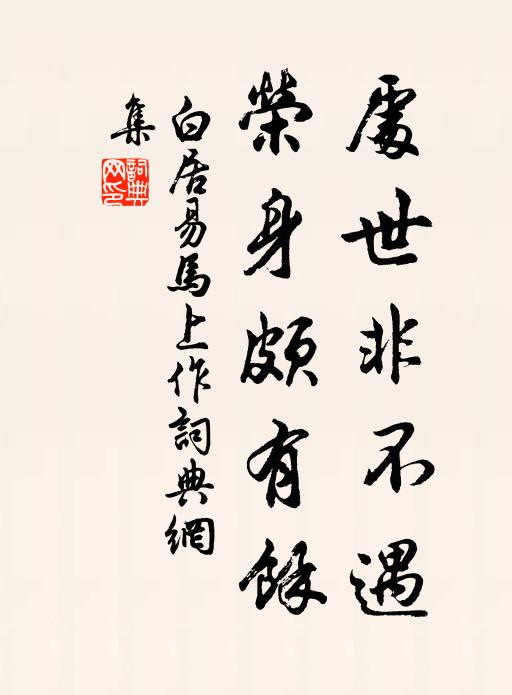 處世非不遇
榮身頗有餘
白居易馬上作詞典網
集
詞典網印